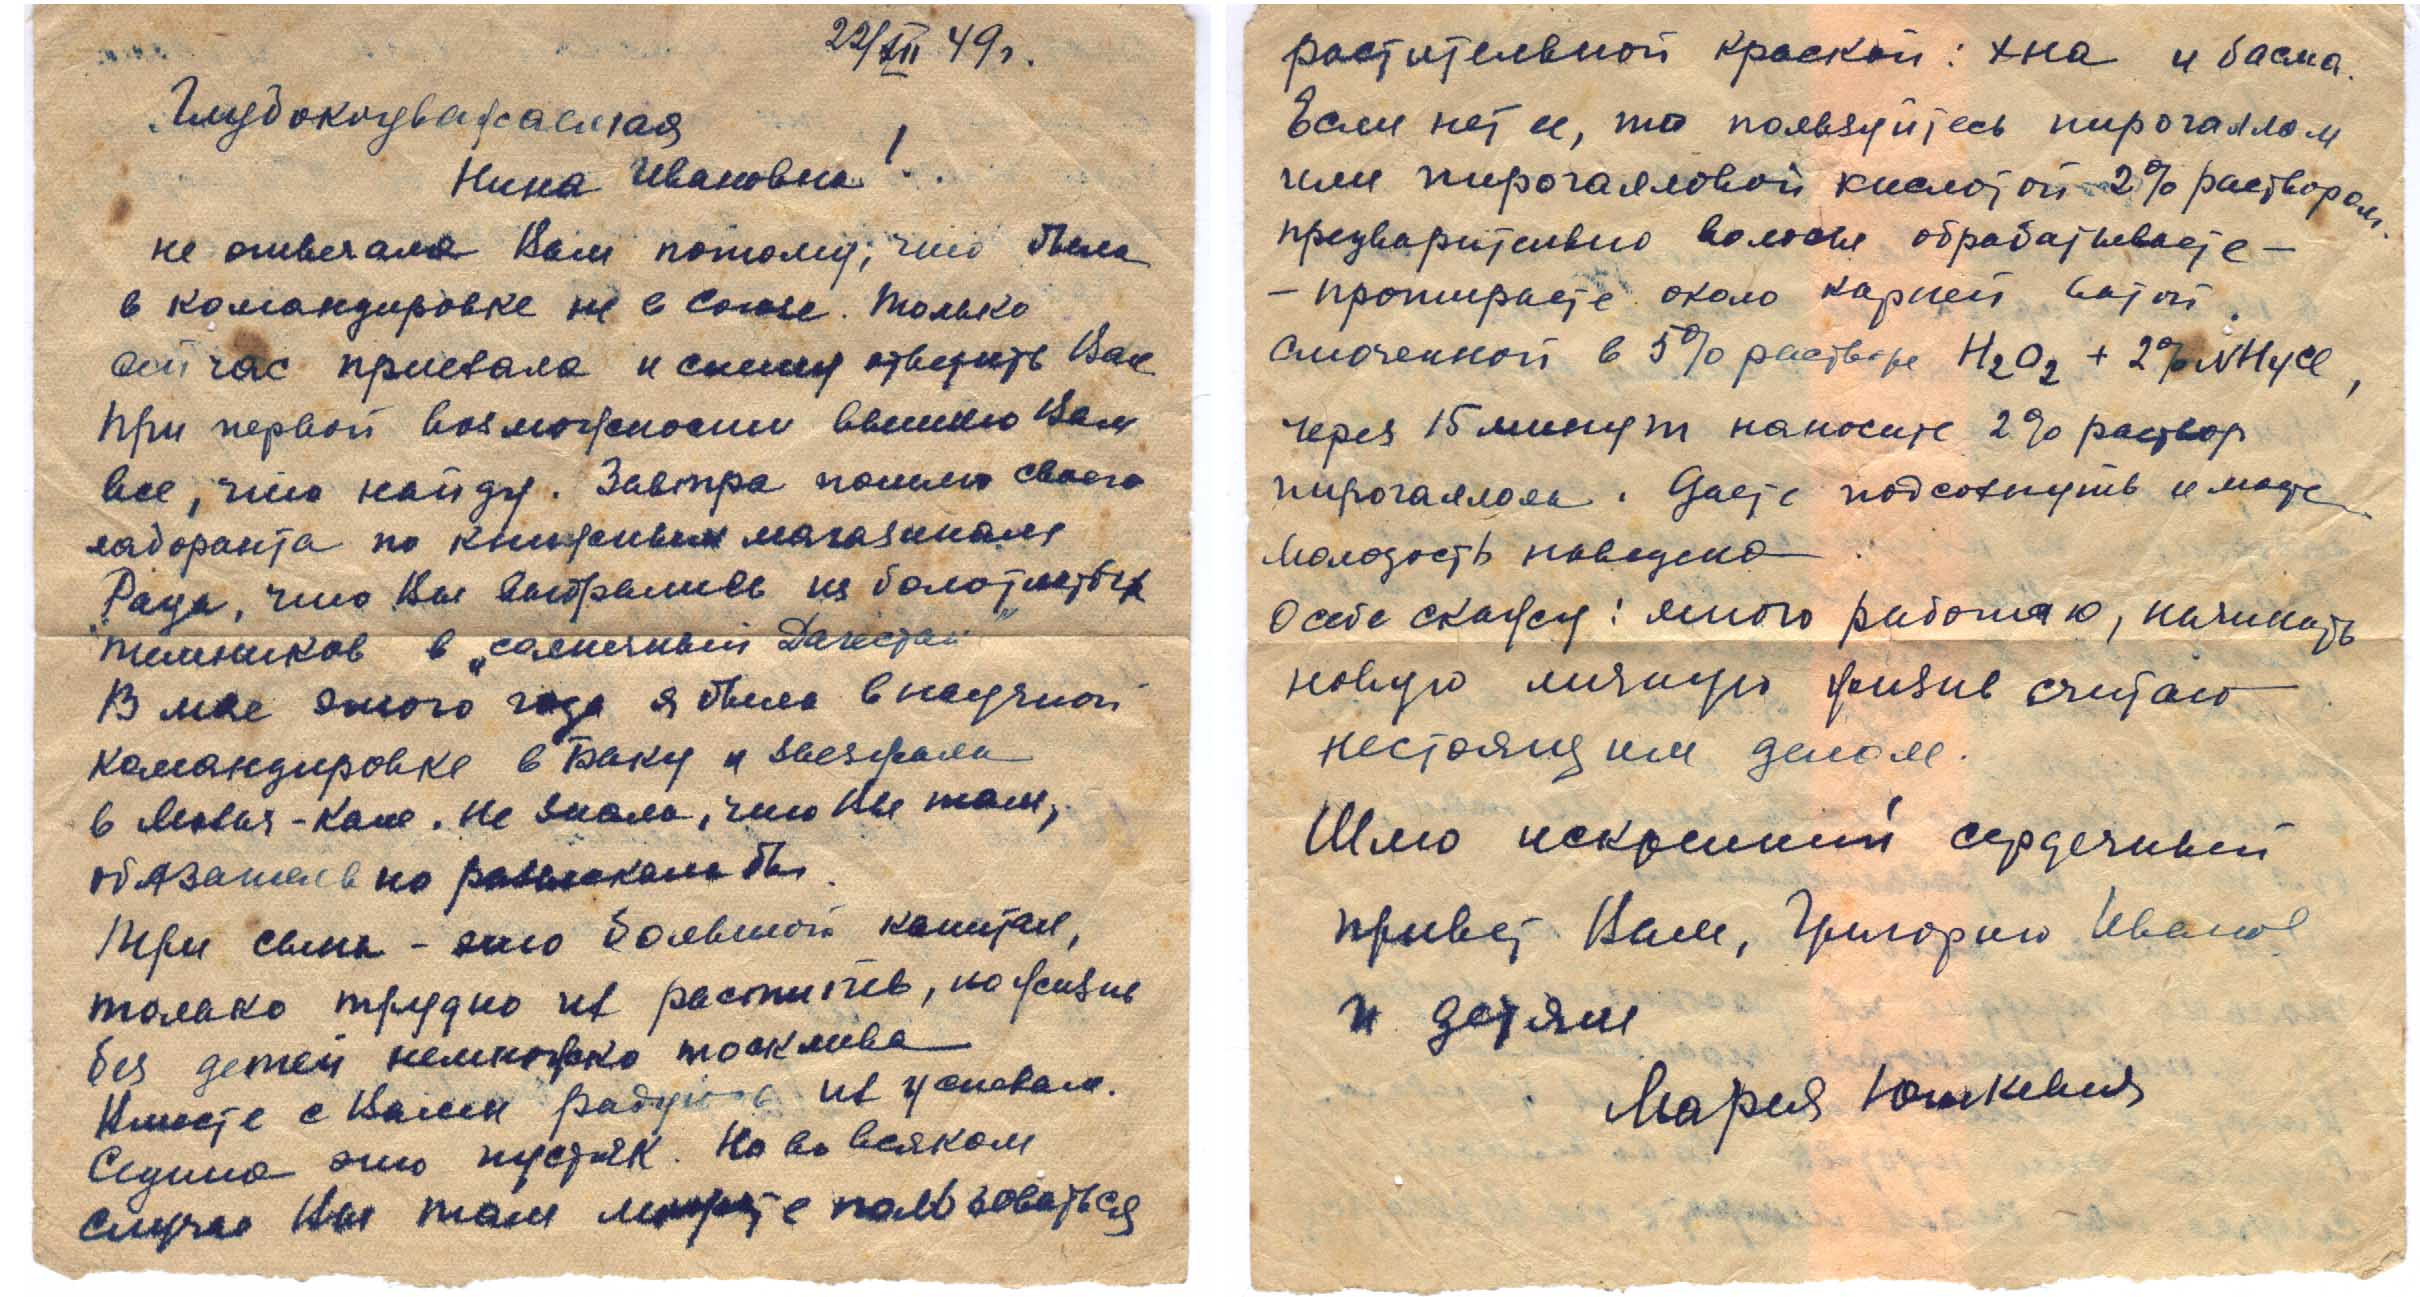 22/XII 49г.
Глубокоуважаемая
Нина Ивановна!
не отвечала Вам потому, что была
в командировке не в Союзе. Только
сейчас приехала и спешу ответить Вам
При первой возможности вышлю Вам
все, что найду. Завтра пошлю своего
лаборанта по книжным магазинам
Рада, что Вы выбрались из болотистых
темников в "солнечный Дагестан"
В мае этого года я была в научной
командировке в Баку и заезжала
в Махач-Кале. Не знала, что Вы там,
обязательно разыскала бы.
Три сына - это большой капитал,
только трудно их растить, но жизнь
без детей немножко тосклива
Вместе с Вами радуюсь их успехам.
Седина это пустяк. Но во всяком
случае Вы там можете пользоваться
растительной краской: хна и басма.
Если нет ее, то пользуйтесь пирогаллом
или пирогалловой кислотой 2% раствором.
предварительно волосы обрабатываете -
- протираете около корней ватой
смоченной в 5% растворе H2O2 + 2% NH4Cl,
через 15 минут наносите 2% раствор
пирогаллола. Даете подсохнуть и
молодость наведена.
О себе скажу: много работаю, начинать
новую личную жизнь считаю
нестоящим делом.
Шлю искренний сердечный
привет Вам, Григорию Иванов
и детям
Мария Юшкевич